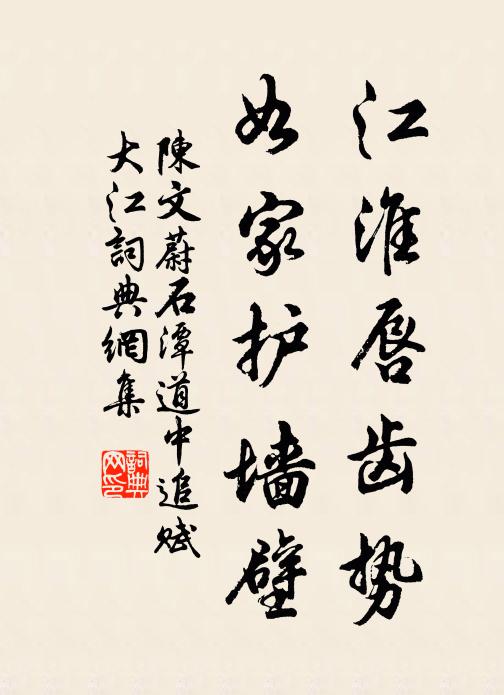 江淮唇齿势
如家护墙壁
陳文蔚石潭道中追赋
大江詞典網集
詞典
网印